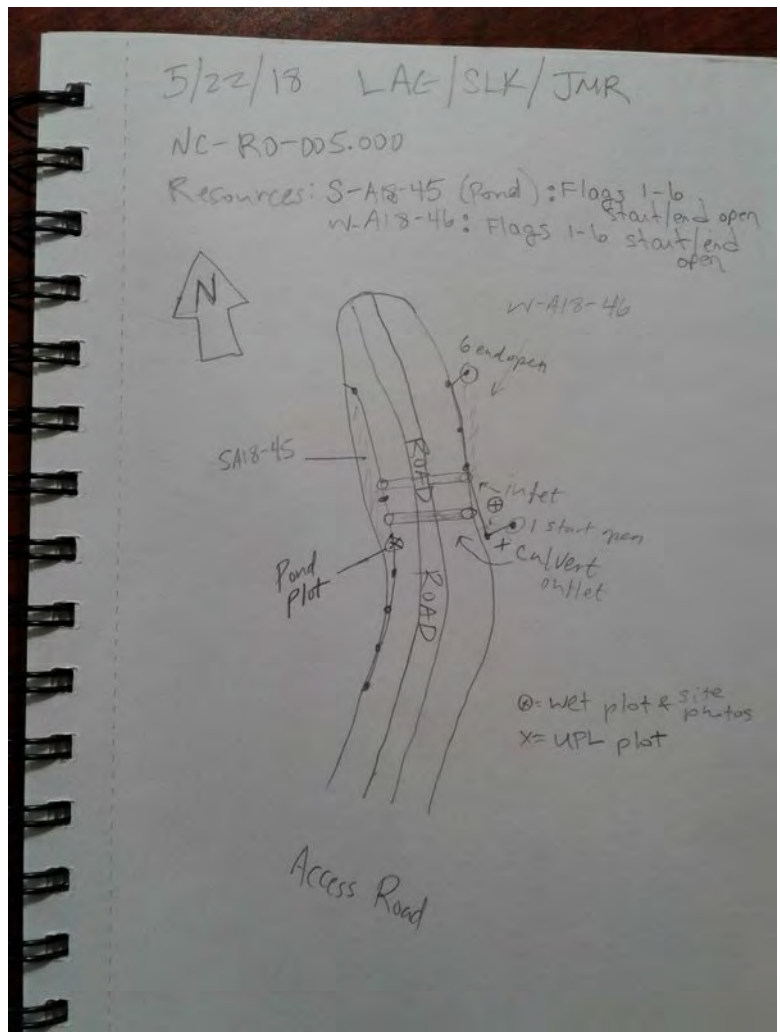 5/22/18 LAE/SLK/JMR
NC-RO-005.000
Resources: S-A18-45 (Pond): Flags 1-6
start/end open
W-A18-46: Flags 1-6 start/end
open
N
W-A18-46
6 end open
SA18-45
ROAD
inlet
1 start open
Culvert
outlet
Pond
Plot
ROAD
= wet plot & site
photos
X= UPL plot
Access Road